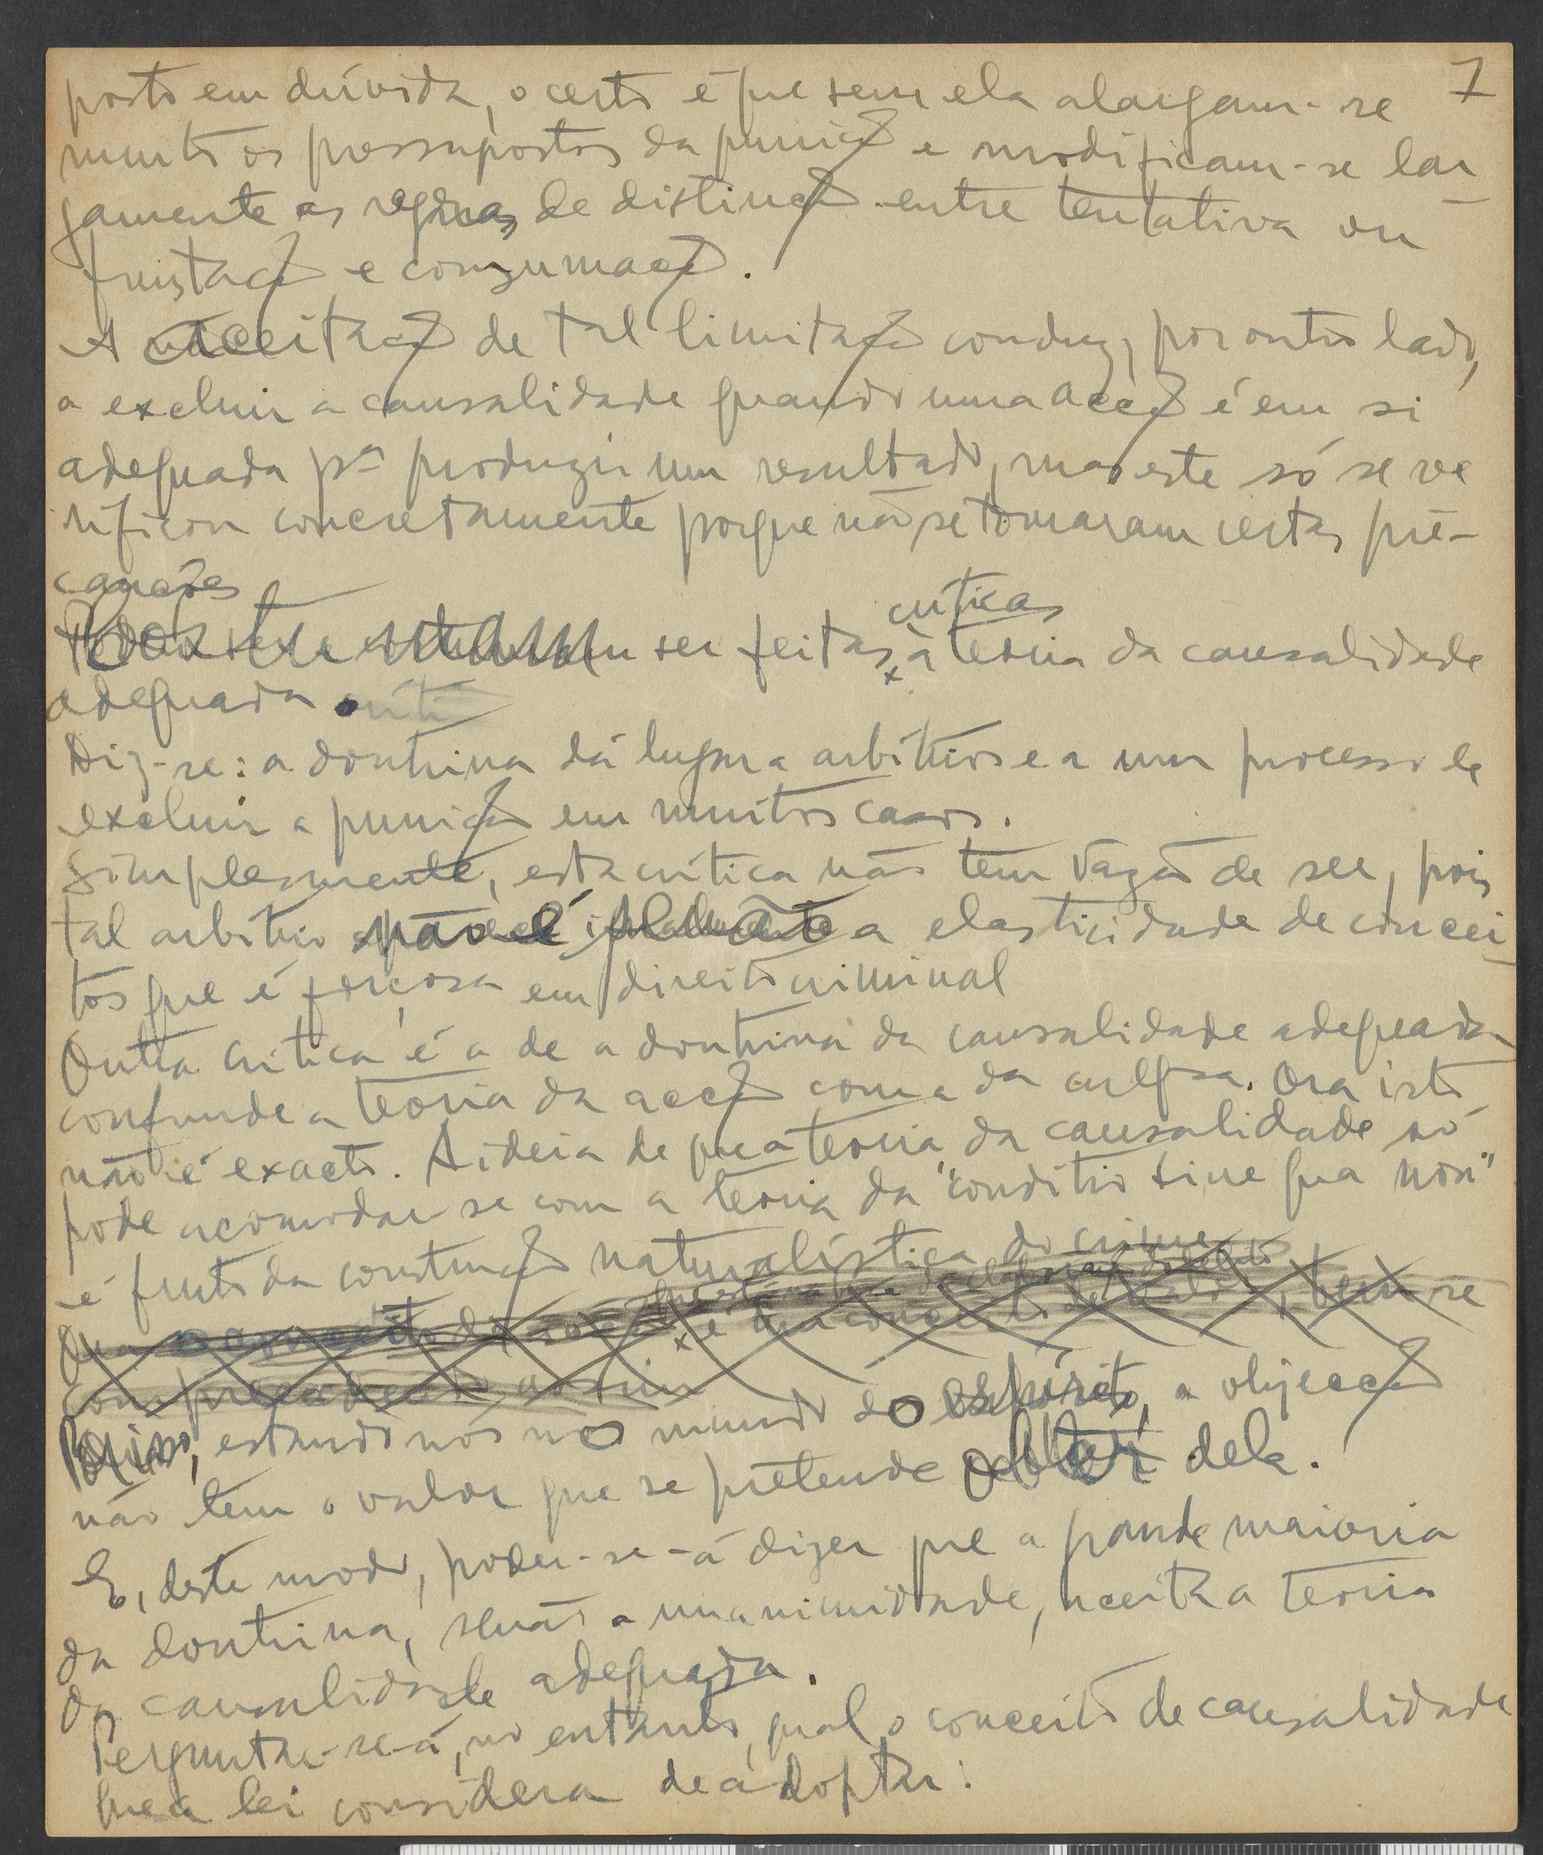 7
posto em dúvida, o certo é que sem ela alargam-se
muito os pressupostos da punição e modificam-se lar
gamente as regras de distinção entre tentativa ou
frustação e consumação.
A aceitação de tal limitação conduz, por outro lado,
a excluir a causalidade quando uma acção é em si
adequada pª produzir um resultado, mas este só se ve
rificou concretamente porque não se tomaram certas pre-
cauções
críticas
ser feitas à teoria da causalidade
adequada.
Diz-se: a doutrina dá lugar a arbítrios e a um processo de
excluir a punição em muitos casos.
Simplesmente, esta crítica não tem razão de ser, pois
tal arbítrio não é a elasticidade de concei
tos que é forçosa em direito criminal
Outra crítica é a de a doutrina da causalidade adequada
confunde a teoria da acção com a da culpa. Ora isto
não é exacto. A ideia de que a teoria da causalidade só
pode acomodar-se com a teoria da "conditio sine qua non"
é fruto da construção naturalística do crime
Ora
Por isso, estando nós no mundo do espírito, a objecção
não tem o valor que se pretende obter dela.
E, deste modo, poder-se-á dizer que a grande maioria
da doutrina, senão a unanimidade, aceita a teoria
da causalidade adequada.
Perguntar-se-á, no entanto, qual o conceito de causalidade
que a lei considera de adoptar: